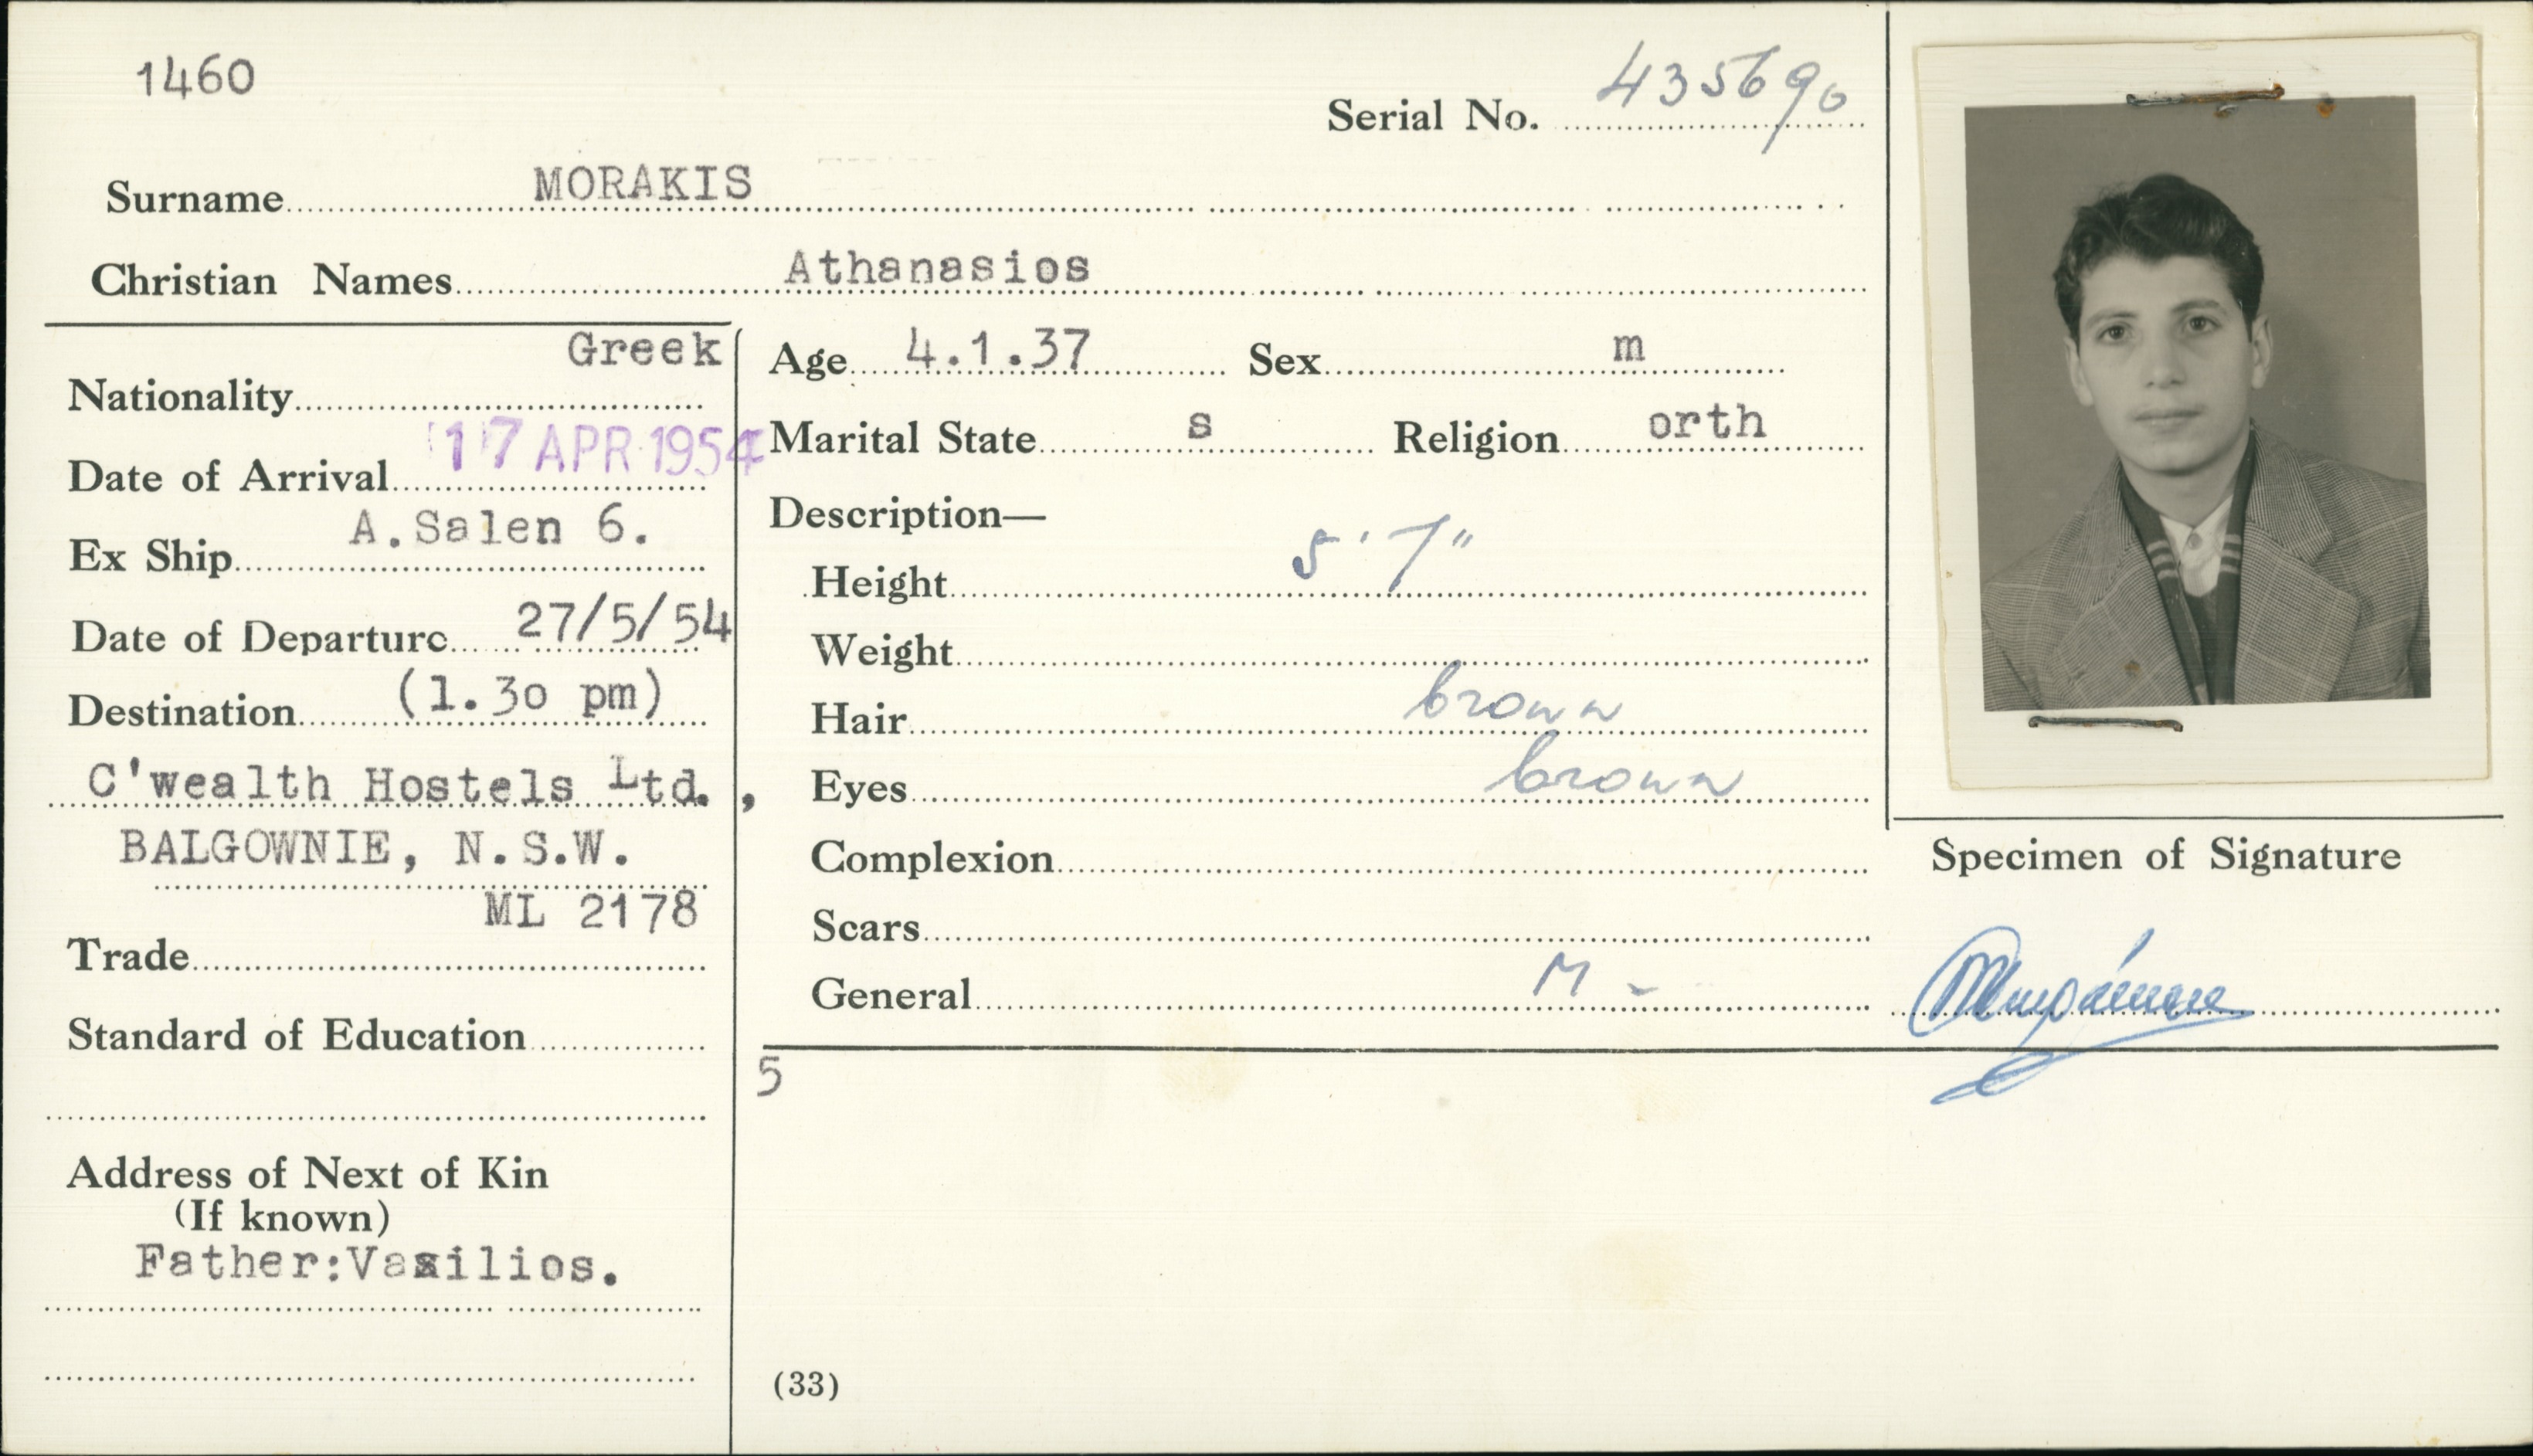 1460
Serial No. 435690
Surname MORAKIS
Christian Names Athanasios
Greek
Nationality
Date of Arrival 17 APR 1954
Ex Ship A.Salen 6.
Date of Departure 27/5/54
Destination (1.30 pm)
C'wealth Hostels Ltd.,
BALGOWNIE, N.S.W.
ML 2178
Trade
Standard of Education
Address of Next of Kin
(If known)
Father:Vasilios.
Age 4.1.37 Sex m
Marital State s Religion orth
Description—
Height 5' 7"
Weight
Hair brown
Eyes brown
Complexion
Scars
General M -
5
(33)
Specimen of Signature